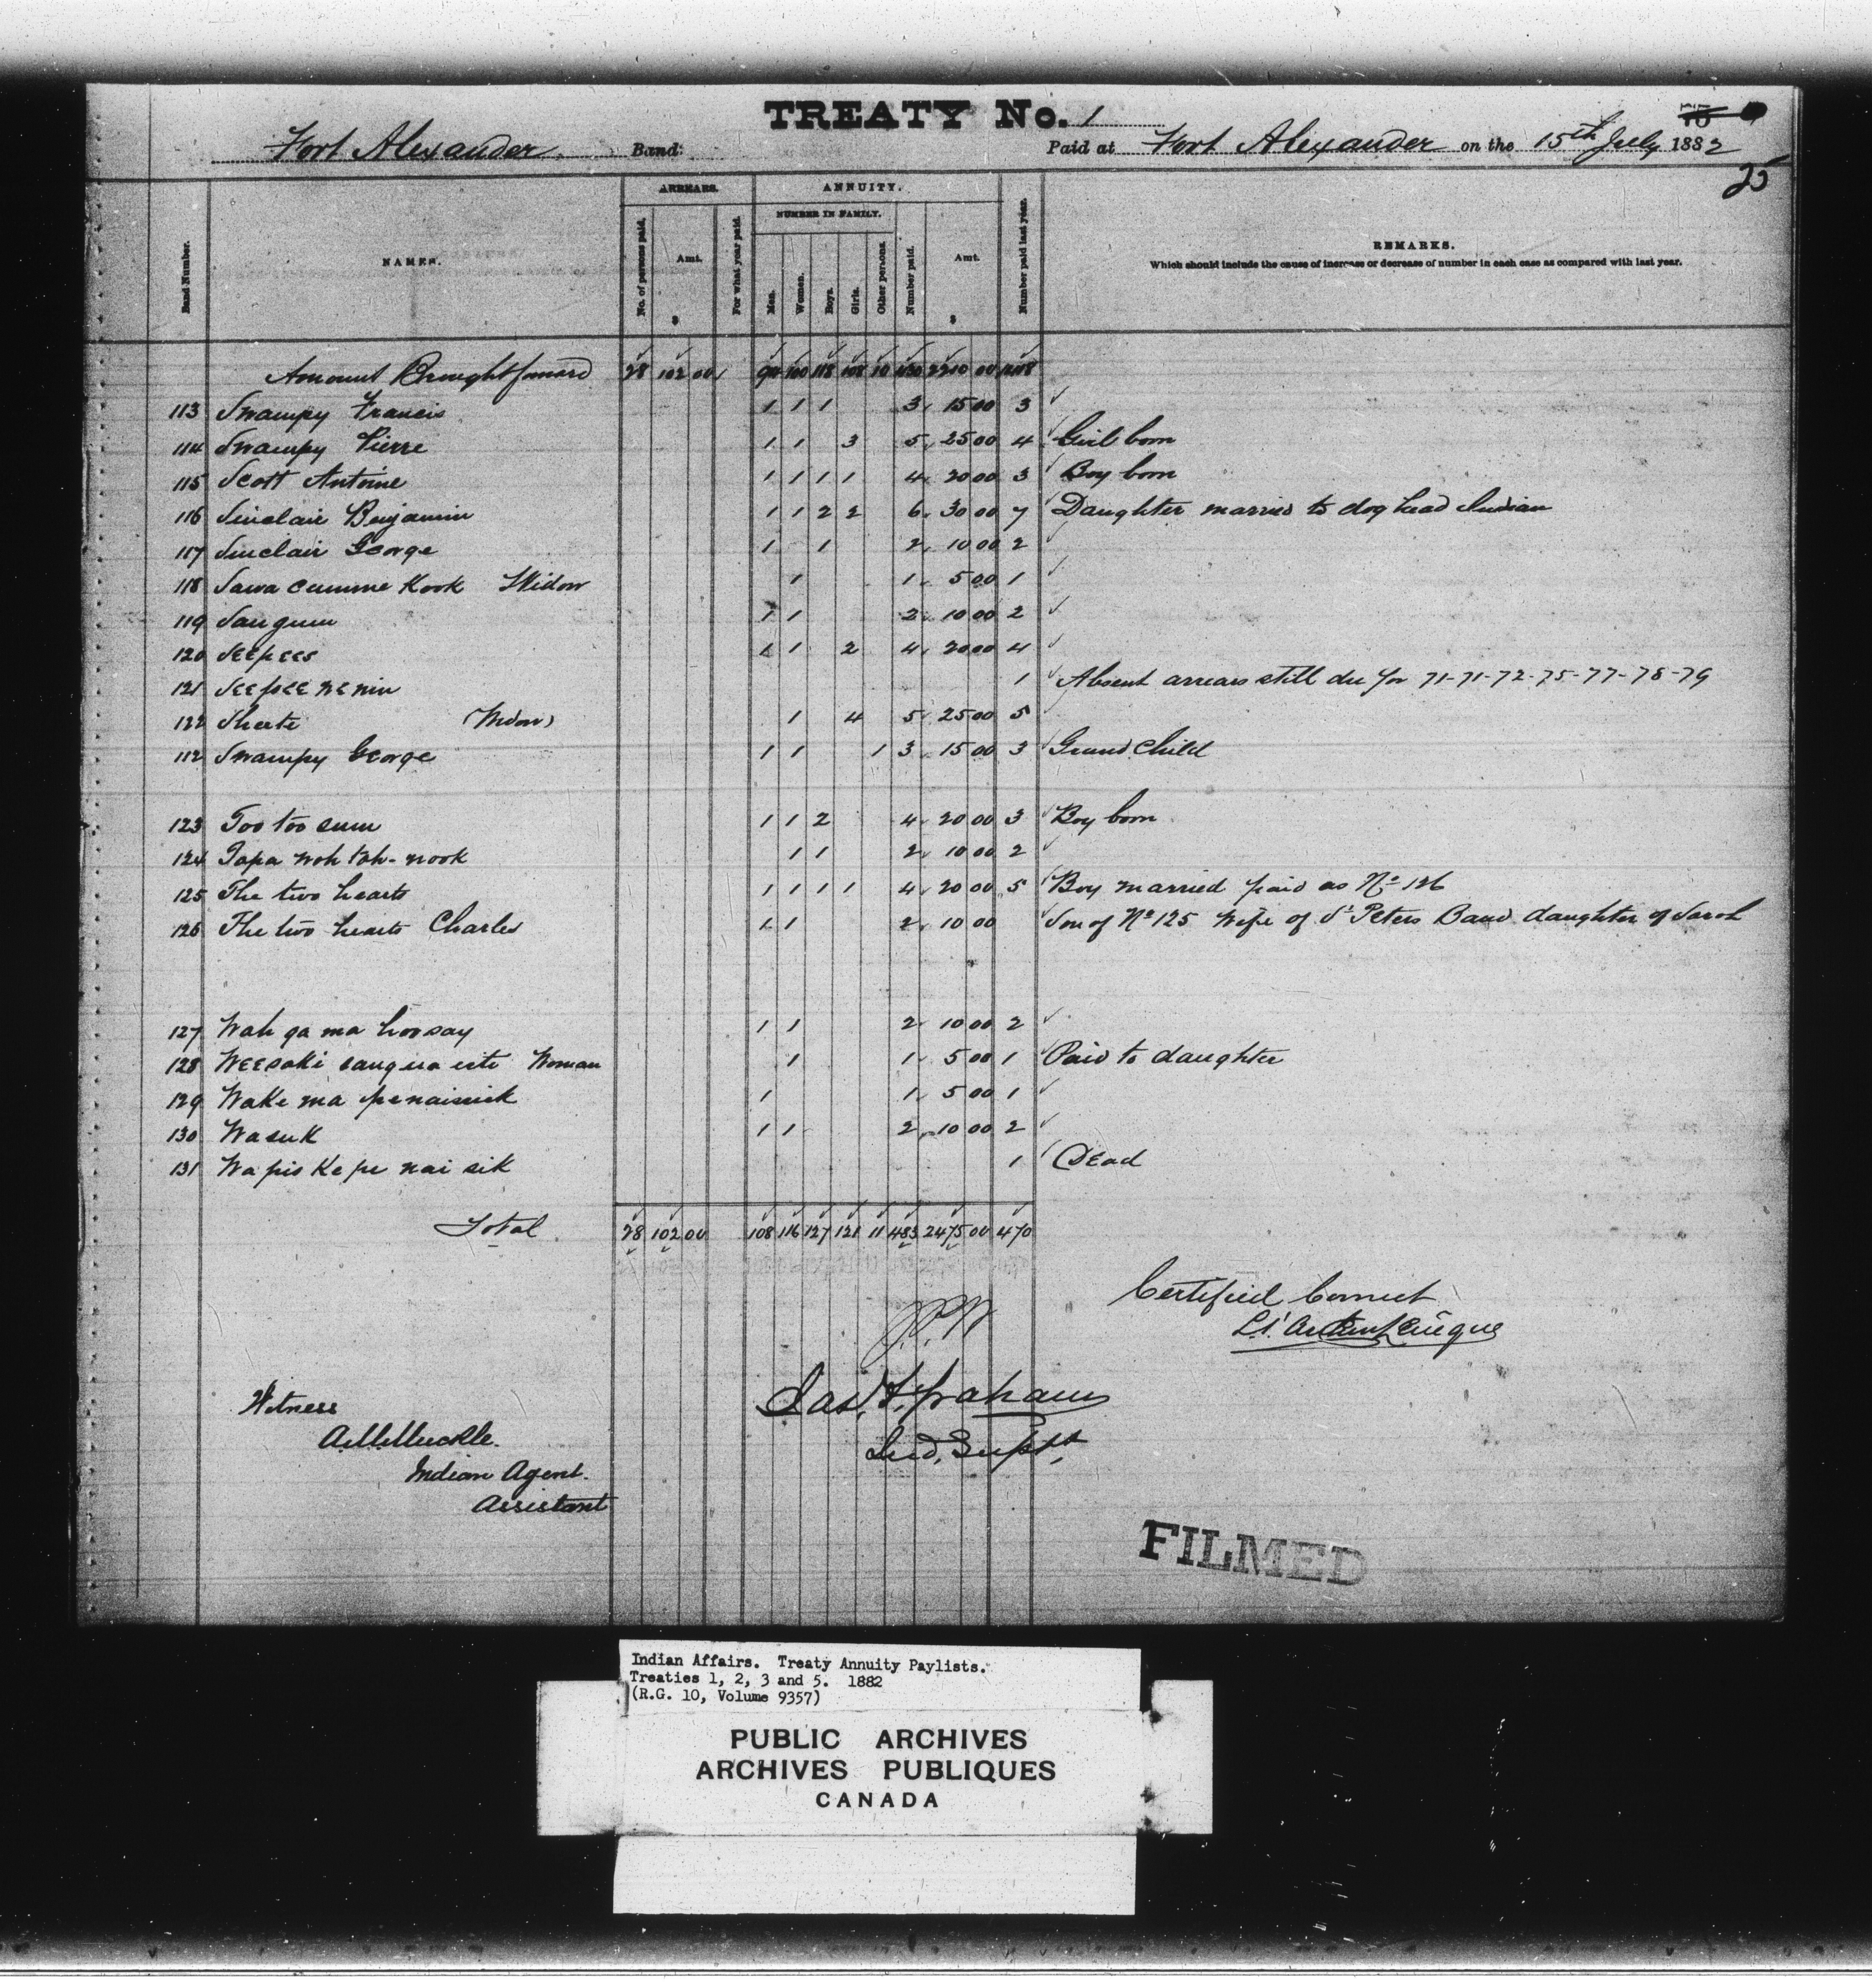 TREATY No. 1
Fort Alexander Band: Paid at Fort Alexander on the 15th July 1882
25
Band Number. NAMES. ARREARS. No. of persons paid. Amt. $ For what year paid. ANNUITY. NUMBER IN FAMILY. Men. Women. Boys. Girls. Other persons. Number paid. Amt. $ Number paid last year. REMARKS.
Which should include the cause of increase or decrease of number in each case as compared with last year.
Amount Brought forward 28 102 00 100 118 108 10 2210 00
113 Swampy Francis 1 1 1 3 15 00 3
114 Swampy Pierre 1 1 3 5 25 00 4 Girl born
115 Scott Antoine 1 1 1 1 4 20 00 3 Boy born
116 Sinclair Benjamin 1 1 2 2 6 30 00 7 Daughter married to dog head Indian
117 Sinclair George 1 1 2 10 00 2
118 Sawa cumme Kook Widow 1 1 5 00 1
119 Sangum 1 1 2 10 00 2
120 Seepees 1 1 2 4 20 00 4
121 Seepee nenin 1 Absent arrears still due for 71-71-72-75-77-78-79
122 Sheete (Widow) 1 4 5 25 00 5
112 Swampy George 1 1 1 3 15 00 3 Grand Child
123 Too too sum 1 1 2 4 20 00 3 Boy born
124 Tapa woh tah-nook 1 1 2 10 00 2
125 The two hearts 1 1 1 1 4 20 00 5 Boy married paid as No 126
126 The two hearts Charles 1 1 2 10 00 Son of No 125 Wife of St Peters Band daughter of Sarah
127 Wah ga ma hoosay 1 1 2 10 00 2
128 Weesaki Woman 1 1 5 00 1 Paid to daughter
129 Wake ma penaisick 1 1 5 00 1
130 Wasuk 1 1 2 10 00 2
131 Wapis Ke pe nai sik 1 Dead
Total 28 102 00 108 116 127 121 11 483 2475 00 470
Certified Correct
Jas. F. Graham
Ind. Supt.
Witness
A.M. Muckle.
Indian Agent.
Assistant
FILMED
Indian Affairs. Treaty Annuity Paylists.
Treaties 1, 2, 3 and 5. 1882
(R.G. 10, Volume 9357)
PUBLIC ARCHIVES
ARCHIVES PUBLIQUES
CANADA